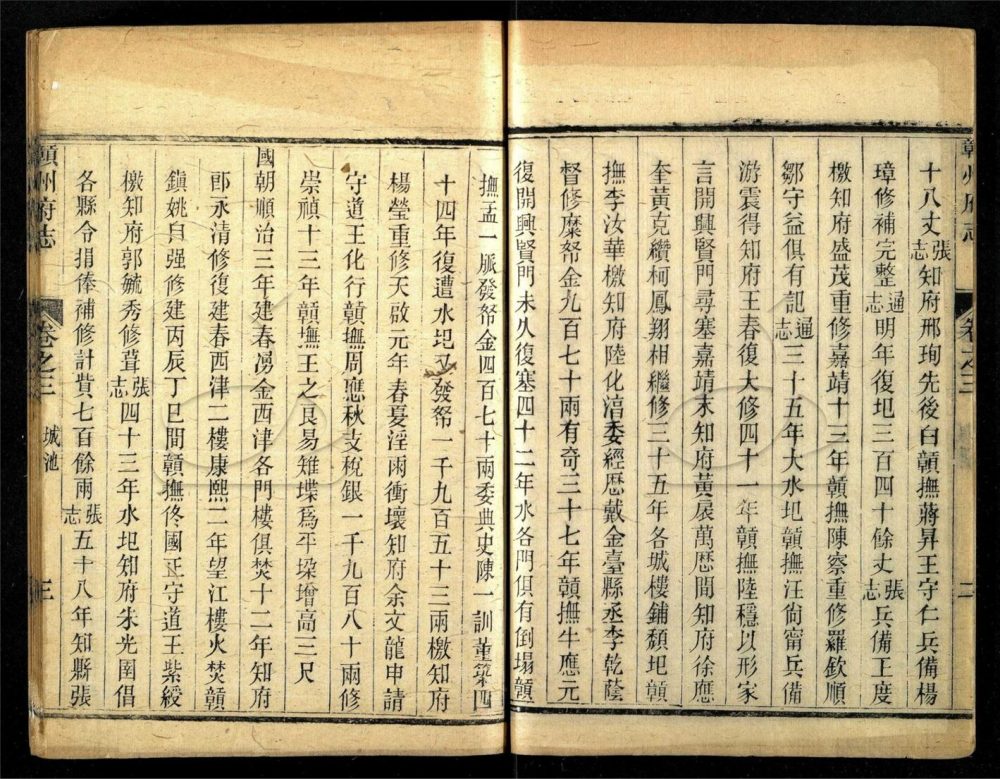 贛州府志 卷之三 二
十八丈張志知府邢珣先後白贛撫蔣昇王守仁兵備楊
璋修補完整通志明年復圯三百四十餘丈張志兵備王度
檄知府盛茂重修嘉靖十三年贛撫陳察重修羅欽順
鄒守益俱有記通志三十五年大水圯贛撫汪尙甯兵備
游震得知府王春復大修四十一年贛撫陸穩以形家
言開興賢門尋塞嘉靖末知府黃扆萬厯間知府徐應
奎黃克纘柯鳳翔相繼修三十五年各城樓鋪頹圯贛
撫李汝華檄知府陸化淯委經厯戴金臺縣丞李乾蔭
督修糜帑金九百七十兩有奇三十七年贛撫牛應元
復開興賢門未久復塞四十二年水各門俱有倒塌贛
撫孟一脈發帑金四百七十兩委典史陳一訓董築四
十四年復遭水圯發帑一千九百五十三兩檄知府
楊瑩重修天啟元年春夏淫雨衝壞知府余文龍申請
守道王化行贛撫周應秋支稅銀一千九百八十兩修
崇禎十三年贛撫王之良易雉堞爲平垜增高三尺
國朝順治三年建春湧金西津各門樓俱焚十二年知府
郎永清修復建春西津二樓康熙二年望江樓火焚贛
鎮姚自强修建丙辰丁巳間贛撫佟國正守道王紫綬
檄知府郭毓秀修葺張志四十三年水圯知府朱光圉倡
各縣令捐俸補修計費七百餘兩張志五十八年知縣張
贛州府志 卷之三 城池 三